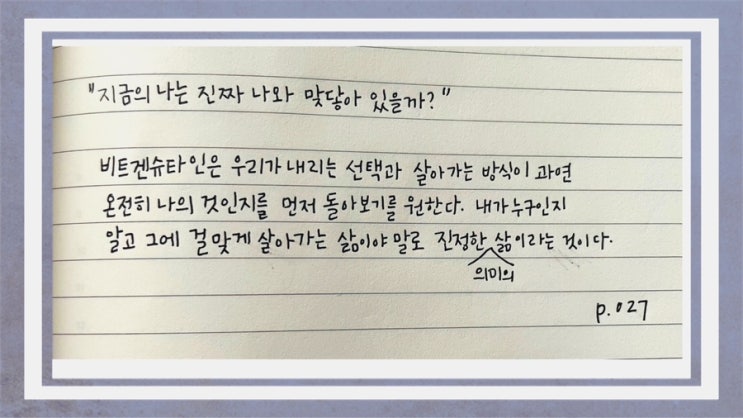 "지금의 나는 진짜 나와 맞닿아 있을까?"
비트겐슈타인은 우리가 내리는 선택과 살아가는 방식이 과연
온전히 나의 것인지를 먼저 돌아보기를 원한다. 내가 누구인지
알고 그에 걸맞게 살아가는 삶이야 말로 진정한 삶이라는 것이다.
의미의
p.027